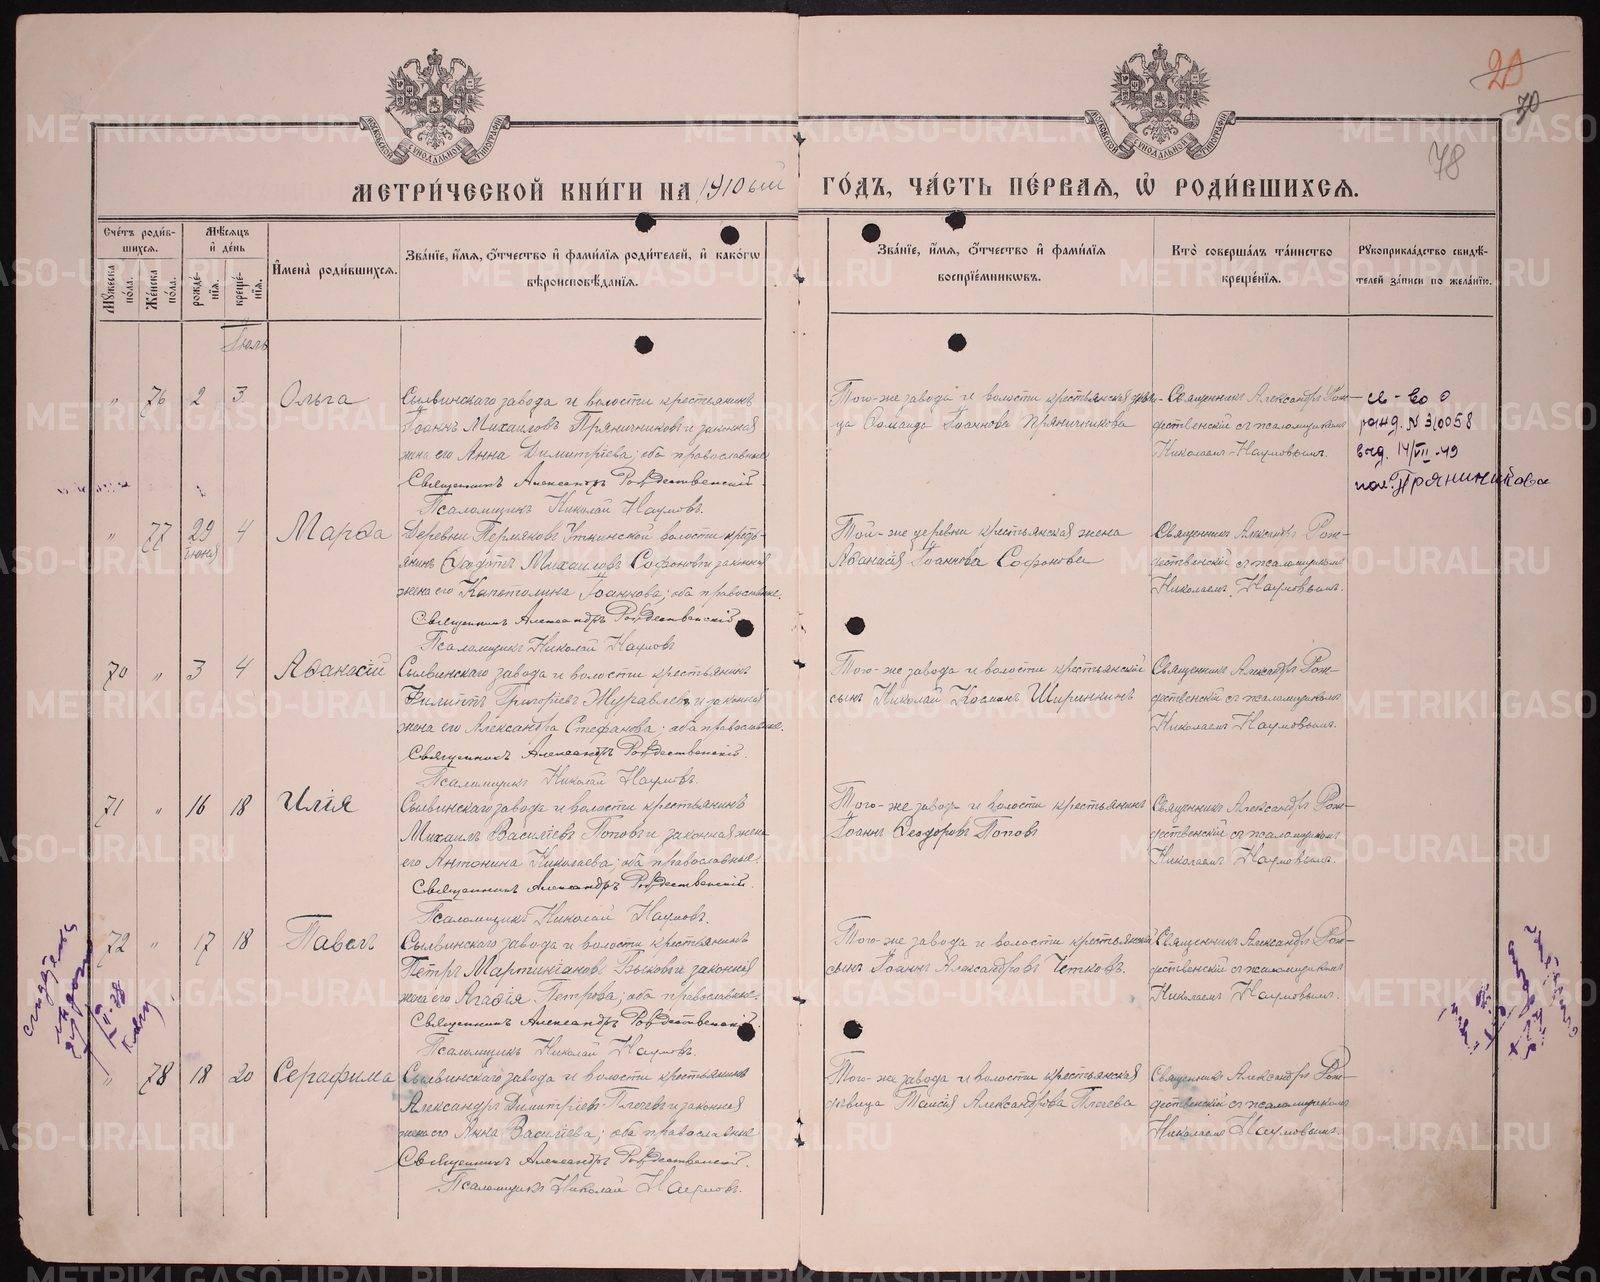 20
70
78
МОСКОВСКОЙ СѴНОДАЛЬНОЙ ТИПОГРАФІИ
МОСКОВСКОЙ СѴНОДАЛЬНОЙ ТИПОГРАФІИ
МЕТРИ́ЧЕСКОЙ КНИ́ГИ НА 1910ый ГО́ДЪ, ЧА́СТЬ ПЕ́РВАѦ, Ѿ РОДИ́ВШИХСѦ.
Сче́тъ роди́в-
шихсѧ.
Мꙋ́жеска по́ла.
Же́нска по́ла.
Мѣ́сѧцъ
и҆ де́нь
рожде-
нїѧ.
креще́-
нїѧ.
И҆мена̀ роди́вшихсѧ.
Зва́нїе, и҆́мѧ, ѻ҆́тчество и҆ фами́лїѧ роди́телей, и҆ како́гѡ
вѣроисповѣ́данїѧ.
Зва́нїе, и҆́мѧ, ѻ҆́тчество и҆ фами́лїѧ
воспрїе́мникѡвъ.
Кто̀ соверша́лъ та́инство
креще́нїѧ.
Рꙋкоприкла́дство свидѣ́-
телей за́писи по жела́нїю.
Іюль
" 76 2 3 Ольга
Сылвинскаго завода и волости крестьянинъ
Іоаннъ Михаиловъ Пряничниковъ и законная
жена его Анна Димитріева; оба православные
Священникъ Александръ Рождественскій
Псаломщикъ Николай Наумовъ.
Того-же завода и волости крестьянская дѣви-
ца Іоаннова Пряничникова
Священникъ Александръ Рож-
дественскій съ псаломщикомъ
Николаемъ Наумовымъ.
св-во о
рожд. № 310058
выд. 14/VII-49
Пряничникова
" 77 29 іюня 4 Марѳа
Деревни Пермяковъ Уткинской волости кресть-
янинъ Ѳеодотъ Михаиловъ Софоновъ и законная
жена его Капитолина Іоаннова; оба православные.
Священникъ Александръ Рождественскій
Псаломщикъ Николай Наумовъ
Той-же деревни крестьянская жена
Аѳанасія Іоаннова Софонова
Священникъ Александръ Рож-
дественскій съ псаломщикомъ
Николаемъ Наумовымъ.
70 " 3 4 Аѳанасій
Сылвинскаго завода и волости крестьянинъ
Филиппъ Григоріевъ Журавлевъ и законная
жена его Александра Стефанова; оба православные.
Священникъ Александръ Рождественскій.
Псаломщикъ Николай Наумовъ.
Того-же завода и волости крестьянскій
сынъ Николай Косминъ Ширинкинъ
Священникъ Александръ Рож-
дественскій съ псаломщикомъ
Николаемъ Наумовымъ.
71 " 16 18 Илія
Сылвинскаго завода и волости крестьянинъ
Михаилъ Василіевъ Поповъ и законная жена
его Антонина Николаева; оба православные.
Священникъ Александръ Рождественскій.
Псаломщикъ Николай Наумовъ.
Того-же завода и волости крестьянинъ
Іоаннъ Ѳеодоровъ Поповъ
Священникъ Александръ Рож-
дественскій съ псаломщикомъ
Николаемъ Наумовымъ.
72 " 17 18 Павелъ
Сылвинскаго завода и волости крестьянинъ
Петръ Мартиніановъ Быковъ и законная
жена его Агаѳія Петрова; оба православные.
Священникъ Александръ Рождественскій.
Псаломщикъ Николай Наумовъ.
Того-же завода и волости крестьянскій
сынъ Іоаннъ Александровъ Четковъ.
Священникъ Александръ Рож-
дественскій съ псаломщикомъ
Николаемъ Наумовымъ.
" 78 18 20 Серафима
Сылвинскаго завода и волости крестьянинъ
Александръ Димитріевъ Плечевъ и законная
жена его Анна Василіева; оба православные
Священникъ Александръ Рождественскій.
Псаломщикъ Николай Наумовъ.
Того-же завода и волости крестьянская
дѣвица Таисія Александрова Плечева
Священникъ Александръ Рож-
дественскій съ псаломщикомъ
Николаемъ Наумовымъ.
METRIKI.GASO-URAL.RU